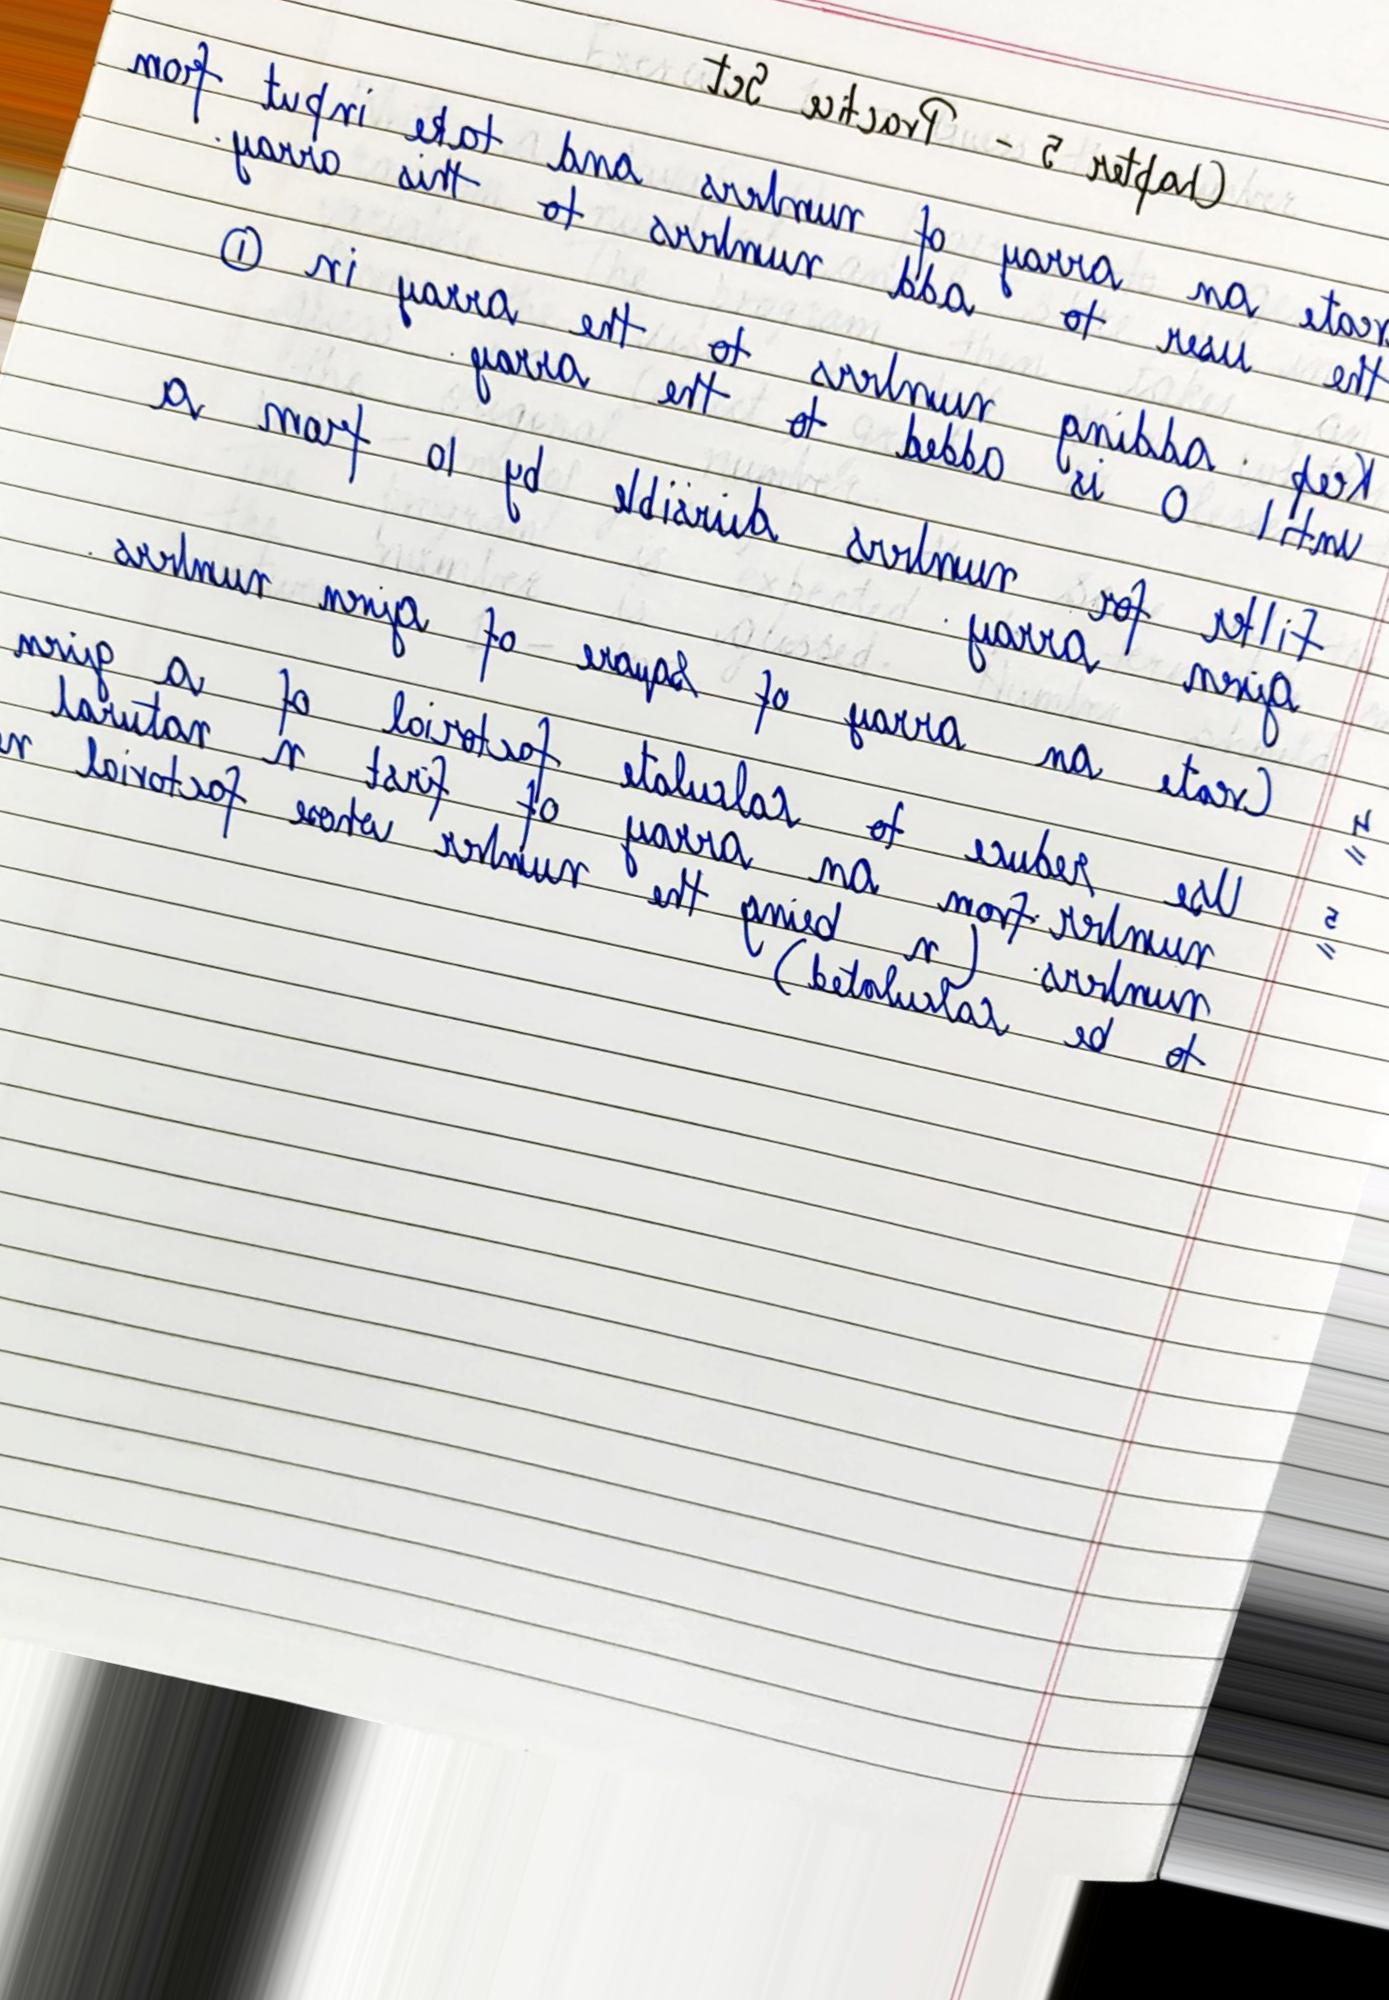 Chapter 5 - Practice Set
reate an array of numbers and take input from
the user to add numbers to this array.
Keep adding numbers to the array in ①
until 0 is added to the array.
Filter for numbers divisible by 10 from a
given array.
4 Create an array of square of given numbers.
5 Use reduce to calculate factorial of a given
number from an array of first n natural
numbers. (n being the number whose factorial ne
to be calculated)